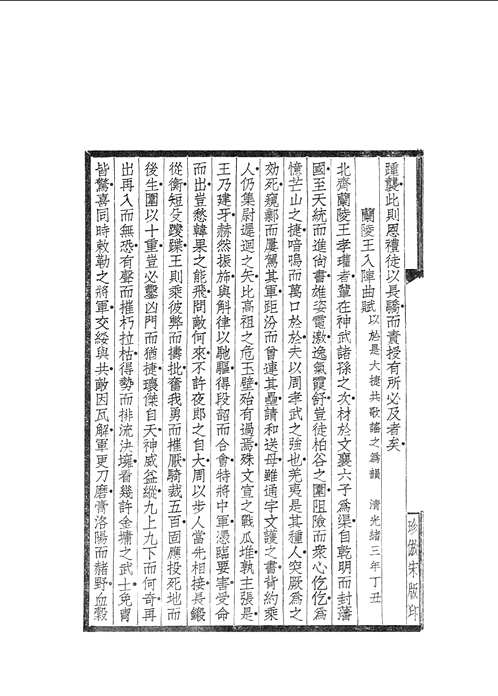 踵襲此則恩禮徒以長驕而責授有所必及者矣
蘭陵王入陣曲賦以於是大捷共歌謠之為韻 清光緒三年丁丑
北齊蘭陵王孝瓘者輩在神武諸孫之次材於文襄六子為渠自乾明而封藩
國至天統而進尚書雄姿電激逸氣霞舒豈徒柏谷之圍阻險而眾心仡仡為
憶芒山之捷喑嗚而萬口於於夫以周孝武之強也羌夷是其種人突厥為之
効死窺鄴而屢駕其軍距汾而曾連其壘請和送母難通宇文護之書背約乘
人仍集尉遲迥之矢比高祖之危玉壁殆有過焉殊文宣之戰瓜堆孰主張是
王乃建牙赫然振旆與斛律以馳驅得段韶而合會特將中軍憑臨要害受命
而出豈愁韓果之能飛問敵何來不許夜郎之自大周以步人當先相接長鍛
從衡短殳蹀躞王則乘彼弊而擣批奮我勇而摧厭騎裁五百固應投死地而
後生圍以十重豈必鑿凶門而猶捷瓌傑自天神威益縱九上九下而何奇再
出再入而無恐有聲而摧朽拉枯得勢而排流決壅看幾許金墉之武士免冑
皆驚喜同時敕勒之將軍交綏與共敵因瓦解軍更刀磨膏洛陽而赭野血穀
珍倣宋版印